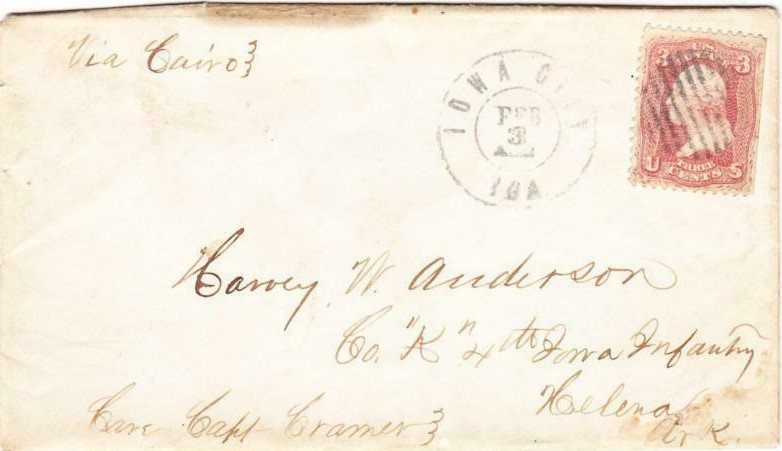 Via Cairo
IOWA CITY
FEB
3
IOA
3 3
U S
THREE
CENTS
Harvey W. Anderson
Co. "K" 4th Iowa Infantry
Helena
Ark.
Care Capt Cramer